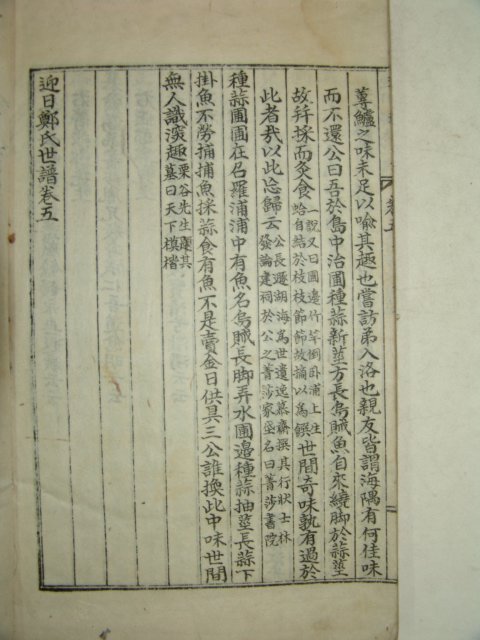 蓴鱸之味未足以喩其趣也嘗訪弟入洛也親友皆謂海隅有何佳味
而不還公曰吾於島中治圃種蒜新莖方長烏賊魚自來繞脚於蒜莖
故幷採而灸食一說又曰圃邊竹竿倒卧浦上生
蛤自結於枝枝節節故摘以爲饌世間奇味孰有過於
此者我以此忘歸云公長遯湖海爲世遺逸慕齋撰其行狀士林
發論建祠於公之菁莎家座名曰菁莎書院
種蒜圃圃在召羅浦浦中有魚名烏賊長脚弄水圃邉種蒜抽莖長蒜下
掛魚不勞捕捕魚採蒜食有魚不是賣金日供具三公誰換此中味世間
無人識深趣栗谷先生題其
墓曰天下模楷
迎日鄭氏世譜卷五